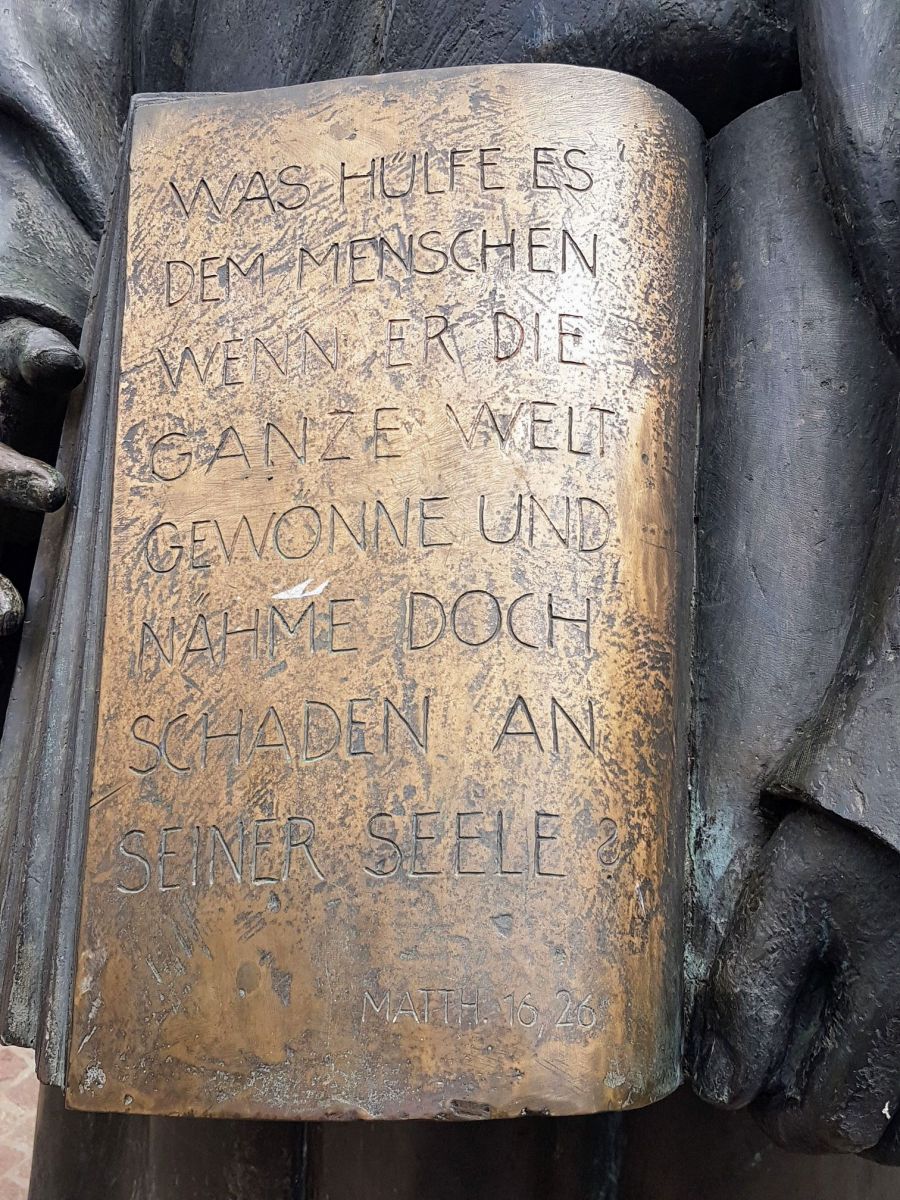 WAS HÜLFE ES
DEM MENSCHEN
WENN ER DIE
GANZE WELT
GEWONNE UND
NÄHME DOCH
SCHADEN AN
SEINER SEELE ?
MATTH. 16,26